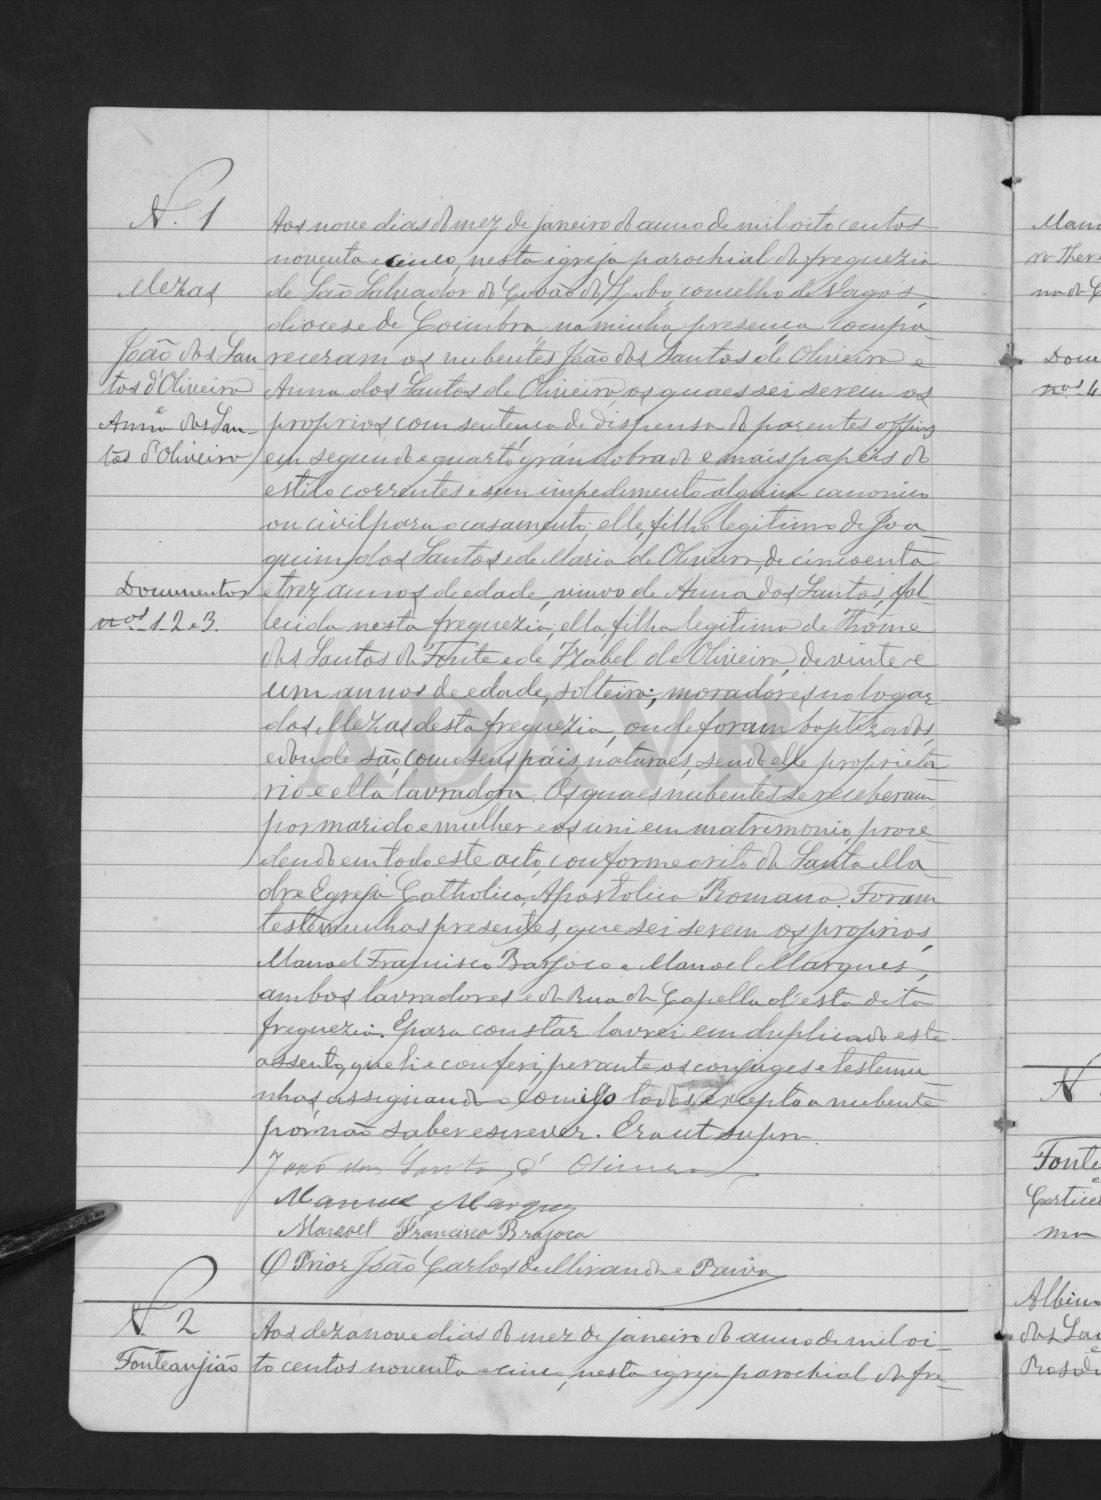 N.º 1
Mezas
João dos San
tos d'Oliveira
e
Anna dos San-
tos d'Oliveira
Documentos
nos 1. 2 e 3.
Aos nove dias do mez de janeiro do anno de mil oito centos
noventa e cinco, nesta igreja parochial da freguezia
de São Salvador do Covão do Lobo, concelho de Vagos,
diocese de Coimbra na minha presença compa
receram os nubentes João dos Santos de Oliveira e
Anna dos Santos de Oliveira, os quaes sei serem os
proprios com sentença de dispensa do parentes
em segundo e quarto grau dobrado e mais papeis do
estilo correntes e sem impedimento algum canonico
ou civil para o casamento; elle, filho legitimo de Joa
quim dos Santos e de Maria de Oliveira, de cincoenta
e trez annos de edade, viuvo de Anna dos Santos, fal
lecida nesta freguezia; ella, filha legitima de Thome
dos Santos da Fonte e de Izabel de Oliveira, de vinte e
um annos de edade, solteira; moradores no logar
das Mezas desta freguezia, onde foram baptizados,
e donde são, como seus pais, naturaes, sendo elle proprieta
rio e ella lavradora. Os quaes nubentes se receberam
por marido e mulher e os uni em matrimonio, proce
dendo em todo este acto, conforme o rito da Santa Ma
dre Egreja Catholica, Apostolica Romana. Foram
testemunhas presentes, que sei serem os proprios,
Manoel Francisco Barjoco e Manoel Marques,
ambos lavradores e da Rua da Capella d'esta dita
freguezia. E para constar lavrei em duplicado este
assento, que li e conferi, perante os conjuges e testemu
nhas, assignando comigo todos, excepto a nubente
por não saber escrever. Era ut supra.
João dos Santos d' Oliveira
Manuel Marques
Manoel Francisco Brajoca
O Prior João Carlos de Miranda e Paiva
N. 2
Fonteanjião
Aos dezanove dias do mez de janeiro do anno de mil oi-
to centos noventa e cinco, nesta igreja parochial da fre-
ADAVR
Docu
nos 4
N.
Fonte
e
ma
Albino
dos San
e
Rosa de